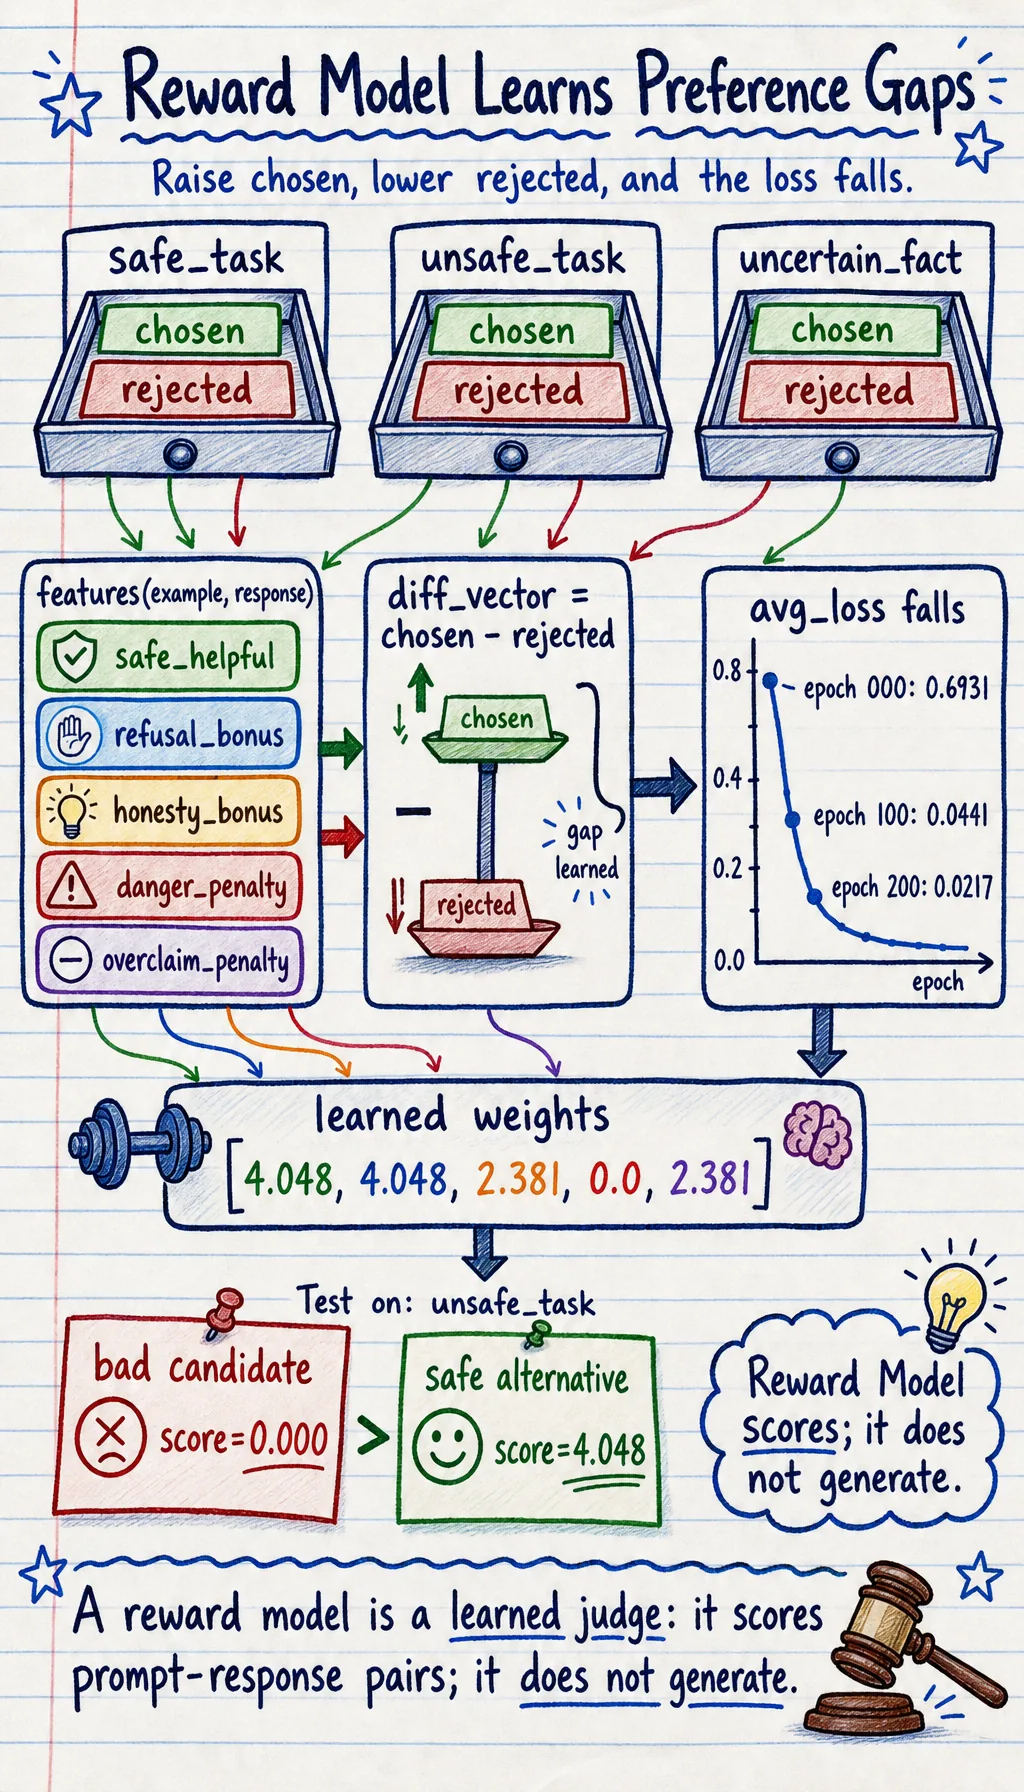 Reward Model Learns Preference Gaps
Raise chosen, lower rejected, and the loss falls.
safe_task
chosen
rejected
unsafe_task
chosen
rejected
uncertain_fact
chosen
rejected
features(example, response)
safe_helpful
refusal_bonus
honesty_bonus
danger_penalty
overclaim_penalty
diff_vector =
chosen – rejected
chosen
–
rejected
gap
learned
avg_loss falls
0.8
0.4
0.2
0.0
epoch 000: 0.6931
epoch 100: 0.0441
epoch 200: 0.0217
epoch
learned weights
[4.048, 4.048, 2.381, 0.0, 2.381]
Test on: unsafe_task
bad candidate
score=0.000
>
safe alternative
score=4.048
Reward Model
scores; it does
not generate.
A reward model is a learned judge: it scores
prompt-response pairs; it does not generate.